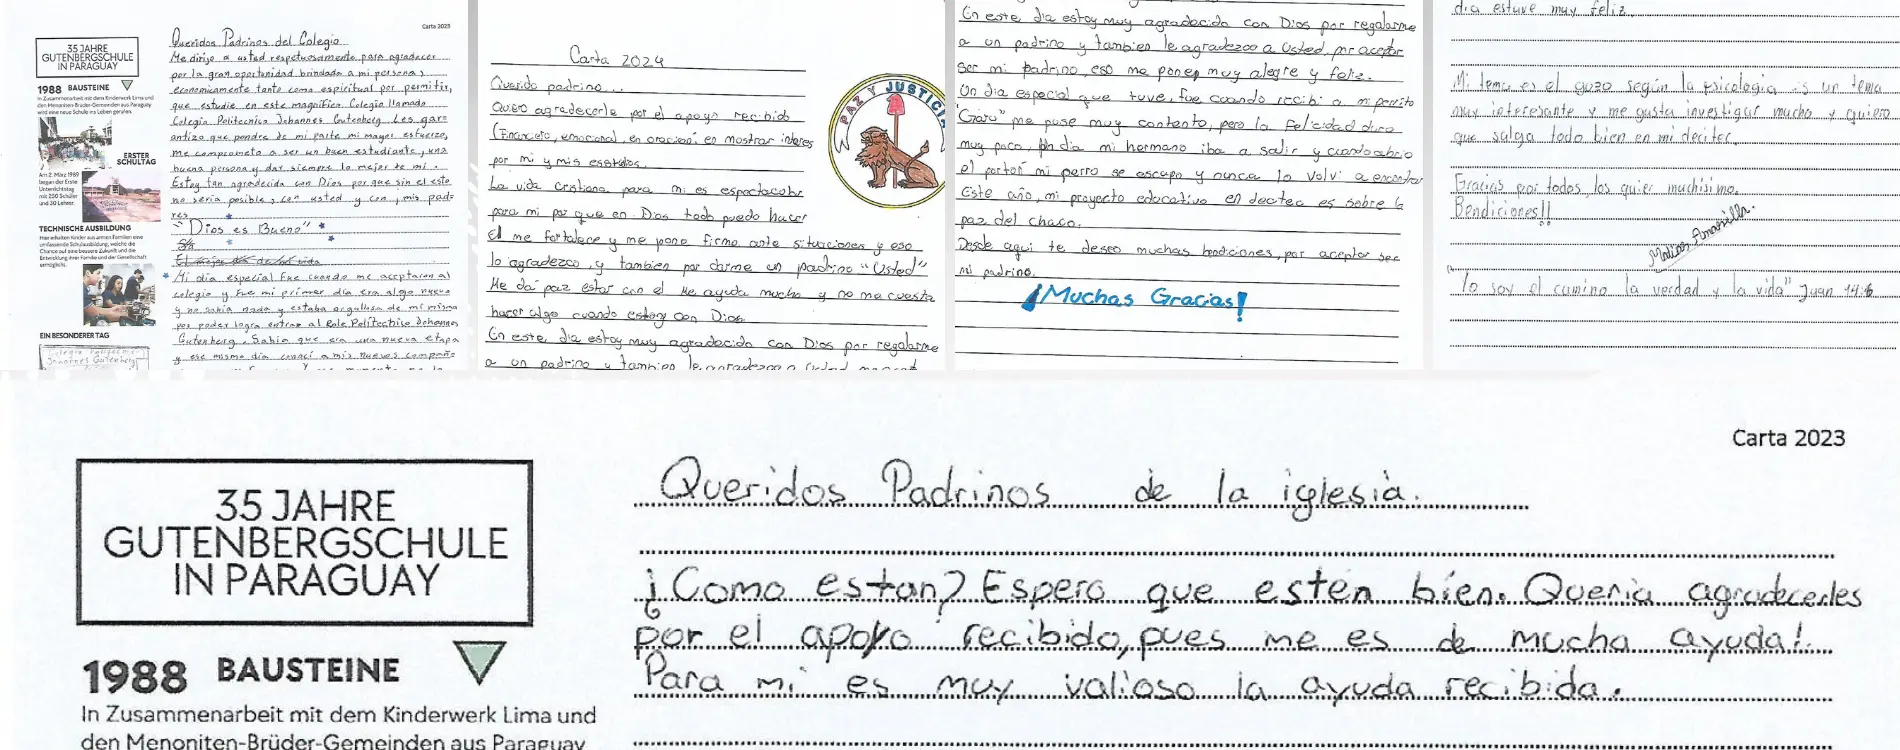 Carta 2023
35 JAHRE
GUTENBERGSCHULE
IN PARAGUAY
1988 BAUSTEINE
In Zusammenarbeit mit dem Kinderwerk Lima und
den Menoniten-Brüder-Gemeinden aus Paraguay
wird eine neue Schule ins Leben gerufen.
ERSTER
SCHULTAG
Am 2. März 1989
began der Erste
Unterrichtstag
mit 250 Schüler
und 30 Lehrer.
TECHNISCHE AUSBILDUNG
EIN BESONDERER TAG
Colegio Politecnico
Johannes Gutenberg
Queridos Padrinos del Colegio
Me dirijo a usted respetuosamente para agradecer
por la gran oportunidad brindada a mi persona,
economicamente tanto como espiritual por permitir,
que estudie en este magnifico Colegio llamado
Colegio Politecnico Johannes Gutenberg. Les gar
antizo que pondre de mi parte mi mayor esfuerzo,
me comprometo a ser un buen estudiante, una
buena persona y dar siempre lo mejor de mi.
Estoy tan agradecida con Dios por que sin el esto
no seria posible, con usted y con mis pad-
res
"Dios es Bueno"
Mi dia especial fue cuando me aceptaron al
colegio y fue mi primer día era algo nuevo
y no sabia nada y estaba orgullosa de mi misma
por poder logra entrar al Cole Politecnico Johannes
Gutenberg. Sabia que era una nueva etapa
y ese mismo dia conoci a mis nuevos compañe
Carta 2024
Querido padrino...
Quiero agradecerle por el apoyo recibido
(Financiero, emocional, en oración, en mostrar interes
por mi y mis estudios.
La vida cristiana para mi es espectacular
para mi por que en Dios todo puedo hacer
El me fortalece y me pone firme ante situaciones y eso
lo agradezco, y tambien por darme un padrino "Usted"
Me da paz estar con el Me ayuda mucho y no me cuesta
hacer algo cuando estoy con Dios.
En este dia estoy muy agradecido con Dios por regalarme
a un padrino y tambien le agradezco a Usted
PAZ Y JUSTICIA
En este dia estoy muy agradecido con Dios por regalarme
a un padrino y tambien le agradezco a Usted, por aceptar
ser mi padrino, eso me ponen muy alegre y feliz.
Un dia especial que tuve, fue cuando recibi a mi perrito
me puse muy contento, pero la felicidad duro
muy poco, un dia mi hermano iba a salir y cuando abrio
el portón mi perro se escapo y nunca lo volvi a encontrar
Este año, mi proyecto educativo en decitec es sobre la
paz del chaco.
Desde aqui te deseo muchas bendiciones, por aceptar ser
mi padrino.
¡Muchas Gracias!
dia estuve muy feliz.
Mi tema es el gozo según la psicologia is un tema
muy interesante y me gusta investigar mucho y quiero
que salga todo bien en mi decitec.
Gracias por todos, los quier muchisimo.
Bendiciones!!
"Yo soy el camino la verdad y la vida" Juan 14:6
Carta 2023
35 JAHRE
GUTENBERGSCHULE
IN PARAGUAY
1988 BAUSTEINE
In Zusammenarbeit mit dem Kinderwerk Lima und
den Menoniten-Brüder-Gemeinden aus Paraguay
Queridos Padrinos de la iglesia.
¿Como estan? Espero que estén bien. Queria agradecerles
por el apoyo recibido, pues me es de mucha ayuda!.
Para mi es muy valioso la ayuda recibida.